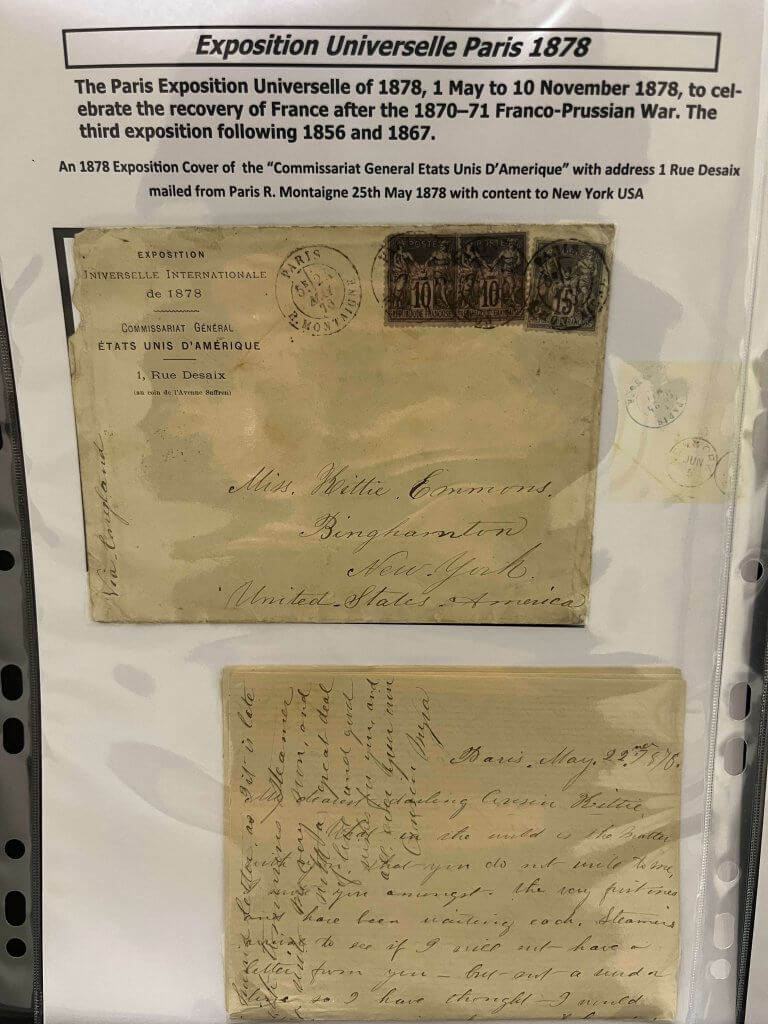 Exposition Universelle Paris 1878
The Paris Exposition Universelle of 1878, 1 May to 10 November 1878, to cel-
ebrate the recovery of France after the 1870–71 Franco-Prussian War. The
third exposition following 1856 and 1867.
An 1878 Exposition Cover of the "Commissariat General Etats Unis D'Amerique" with address 1 Rue Desaix
mailed from Paris R. Montaigne 25th May 1878 with content to New York USA
EXPOSITION
UNIVERSELLE INTERNATIONALE
de 1878
COMMISSARIAT GÉNÉRAL
ÉTATS UNIS D'AMÉRIQUE
1, Rue Desaix
(au coin de l'Avenue Suffren)
PARIS
R. MONTAIGNE
POSTES
10
REPUBLIQUE FRANCAISE
POSTES
10
15
Via England
Miss. Kittie Emmons.
Binghamton
New York.
United States America
PARIS
JUN
Paris, May. 22nd 1878.
My dearest darling Cousin Kittie
What in the world is the matter
with you that you do not write to me,
you amongst the very first ones
and have been waiting each Steamer
to see if I will not have a
letter from you – but not a word or
line so I have thought I would
letter, as it is late
Steamer
soon, and
with a great deal
of love and good
wishes for you, and
all ever your own
Cousin Myra